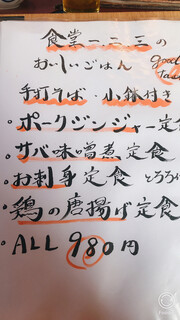 食堂一二三
おいしいごはん good
手打ちそば・小鉢付き
・ポークジンジャー定
・サバ味噌煮定食
・お刺身定食 とろろ
・鶏の唐揚げ定食
・ALL 980円